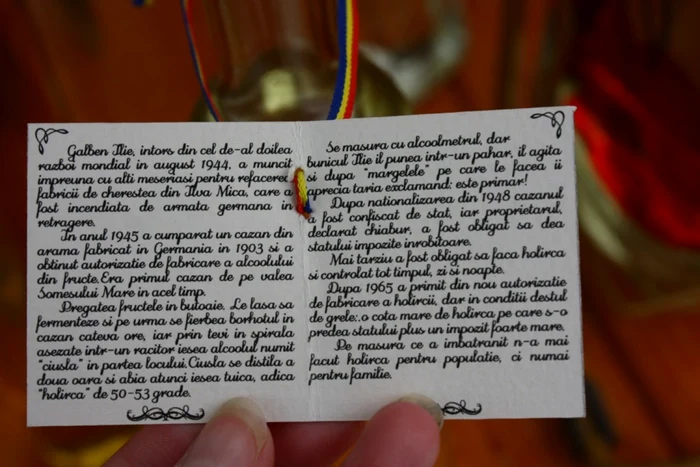 Galben Ilie, intors din cel de-al doilea
razboi mondial in august 1944, a muncit
impreuna cu alti meseriasi pentru refacerea
fabricii de cherestea din Ilva Mica, care a
fost incendiata de armata germana in
retragere.
In anul 1945 a cumparat un cazan din
arama fabricat in Germania in 1903 si a
obtinut autorizatie de fabricare a alcoolului
din fructe.Era primul cazan de pe valea
Somesului Mare in acel timp.
Pregatea fructele in butoaie. Le lasa sa
fermenteze si pe urma se fierbea borhotul in
cazan cateva ore, iar prin tevi in spirala
asezate intr-un racitor iesea alcoolul numit
"ciusla" in partea locului.Ciusla se distila a
doua oara si abia atunci iesea tuica, adica
"holirca" de 50-53 grade.
Se masura cu alcoolmetrul, dar
bunicul Ilie il punea intr-un pahar, il agita
si dupa "margelele" pe care le facea ii
aprecia taria exclamand: este primar!
Dupa nationalizarea din 1948 cazanul
a fost confiscat de stat, iar proprietarul,
declarat chiabur, a fost obligat sa dea
statului impozite inrobitoare.
Mai tarziu a fost obligat sa faca holirca
si controlat tot timpul, zi si noapte.
Dupa 1965 a primit din nou autorizatie
de fabricare a holircii, dar in conditii destul
de grele:.o cota mare de holirca pe care s-o
predea statului plus un impozit foarte mare.
Pe masura ce a imbatranit n-a mai
facut holirca pentru populatie, ci numai
pentru familie.